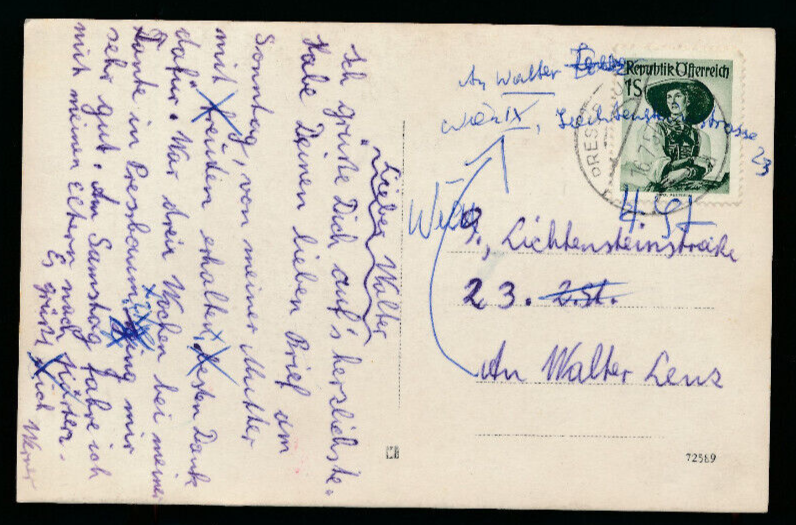 Lieber Walter
Ich grüße Dich auf's herzlichste.
Habe Deinen lieben Brief am
Sonntag, von meiner Mutter
mit Freuden erhalten, besten Dank
dafür. War drei Wochen bei meiner
Tante in Pressbaum. Ging mir
sehr gut. Am Samstag fahre ich
mit meinen Eltern nach
Es grüßt Dich Werner
An Walter
Wien IX, Liechtensteinstrasse 23
Republik Österreich
1S
PRESS
16.7.5
Wien
9., Lichtensteinstraße
23. 2.St.
An Walter Lenz
72589